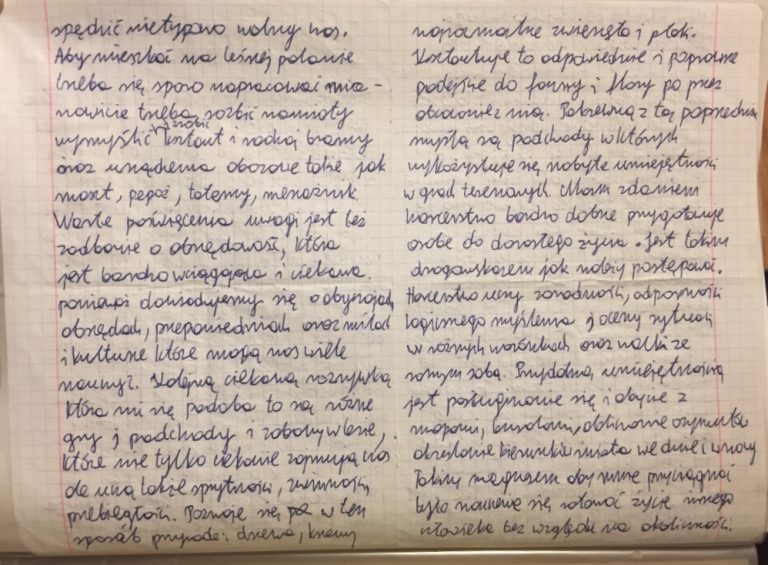 spędzić nietypowo wolny czas.
Aby mieszkać na leśnej polanie
trzeba się sporo napracować mia-
nowicie trzeba rozbić namioty
wymyślić zrobić kształt i rodzaj bramy
oraz urządzenia obozowe takie jak
maszt, totemy,
Warte poświęcenia uwagi jest też
zadbanie o obrzędowość, która
jest bardzo wciągająca i ciekawa.
ponieważ dowiadujemy się o obyczajach
obrzędach, przepowiedniach oraz mitach
i kulturze które mogą nas wiele
nauczyć. Kolejną ciekawą rozrywką
która mi się podoba to są różne
gry i podchody i zabawy w lesie,
które nie tylko ciekawie zajmują nas
ale uczą także sprytności, zwinności,
przebiegłości. Poznaje się w ten
sposób przyrodę: drzewa, krzewy
zwierzęta i ptaki.
Kształtuje to odpowiednie i poprawne
podejście do fauny i flory po przez
obcowanie z nią. Pokrewną z tą poprzednią
myślą są podchody w których
wykożystuje się nabyte umiejętności
w grach terenowych. Moim zdaniem
harcerstwo bardzo dobrze przygotowuje
osobę do dorosłego życia. Jest takim
drogowskazem jak należy postępować.
Harcerstwo uczy zaradności, odporności
logicznego myślenia i oceny sytuacji
w różnych warunkach oraz walki ze
samym sobą. Przydatną umiejętnością
jest posługiwanie się i obycie z
mapami, busolami, obliczanie azymutów
określanie kierunków świata we dnie i w nocy
Takim magnesem aby mnie przyciągnąć
było nauczenie się ratować życie innego
człowieka bez względu na okoliczności.